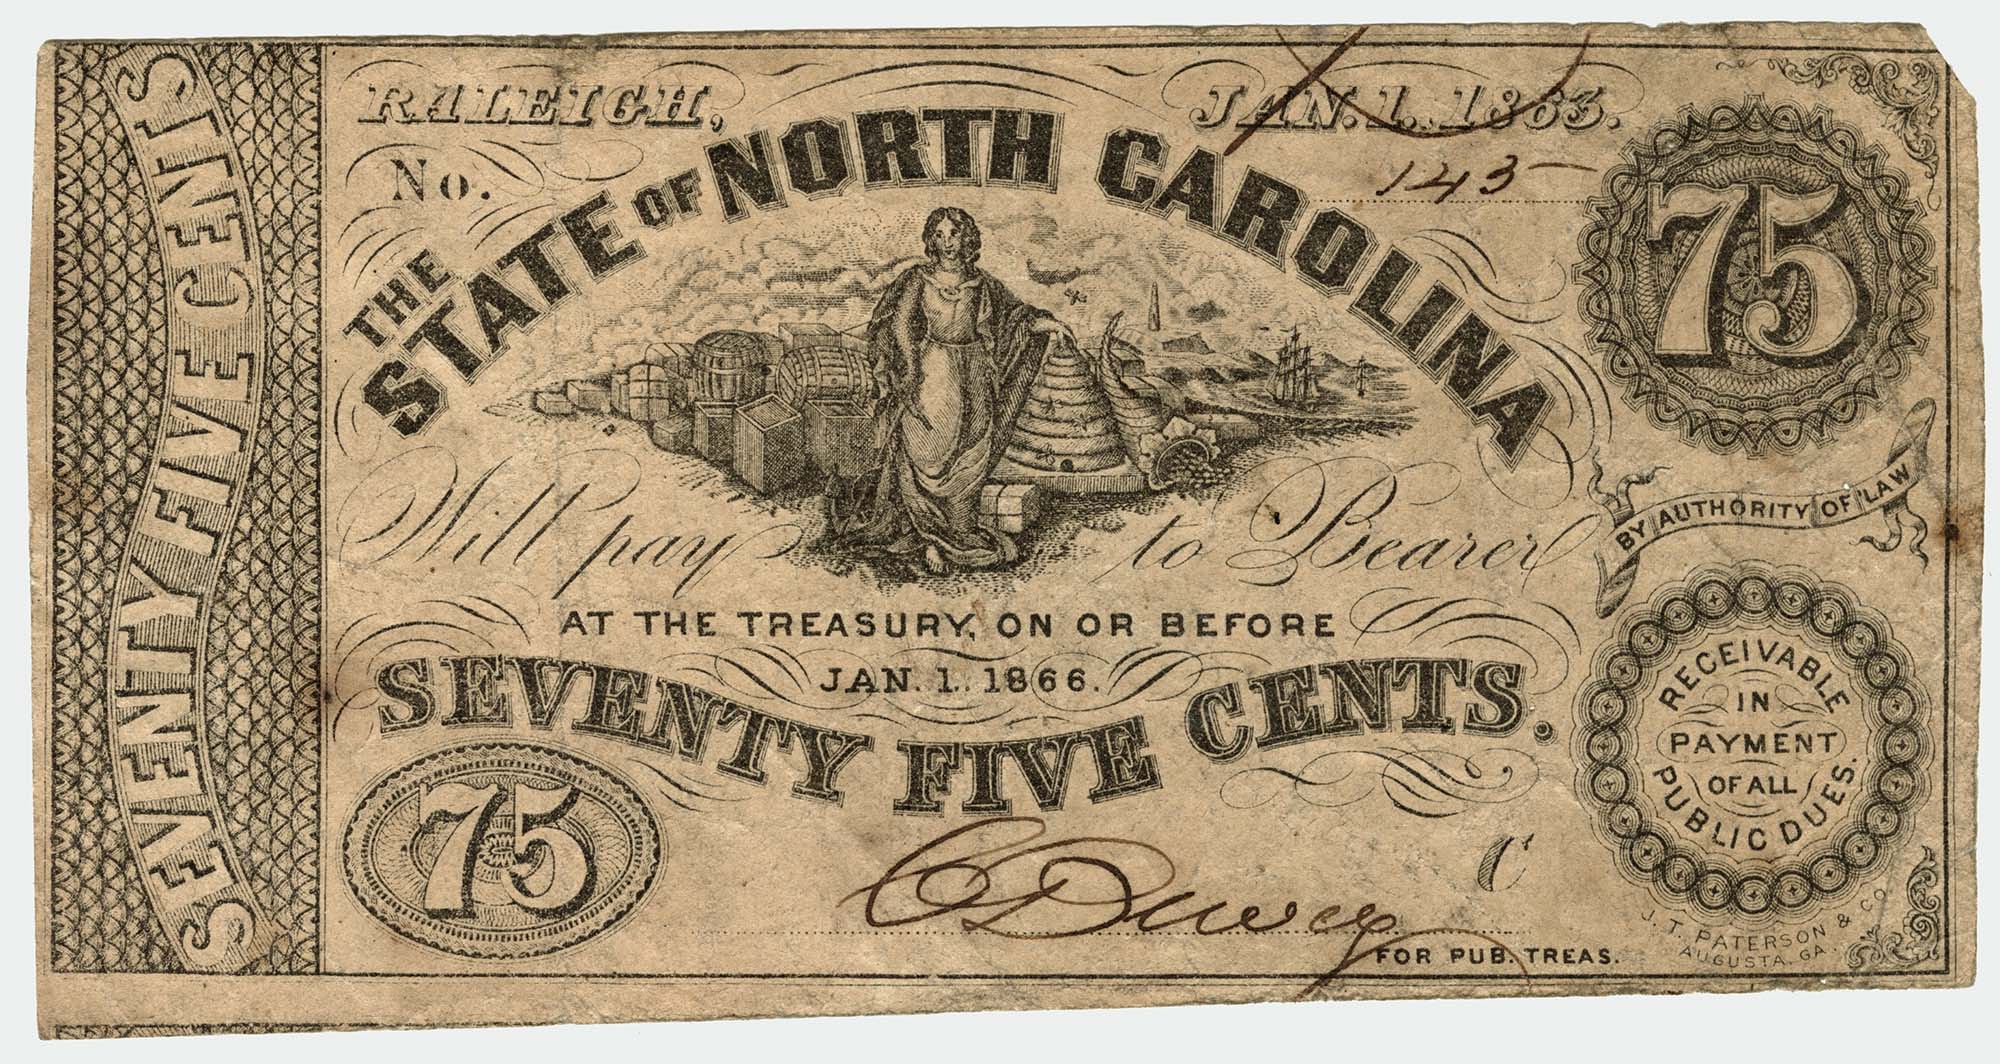 RALEIGH, JAN. 1. 1863.
No. 143
THE
STATE OF NORTH CAROLINA
75
Will pay to Bearer
BY AUTHORITY OF LAW
AT THE TREASURY, ON OR BEFORE
JAN. 1. 1866.
SEVENTY FIVE CENTS.
75
C
FOR PUB. TREAS.
RECEIVABLE
IN
PAYMENT
OF ALL
PUBLIC DUES.
J. T. PATERSON & CO
AUGUSTA, GA.
SEVENTY FIVE CENTS